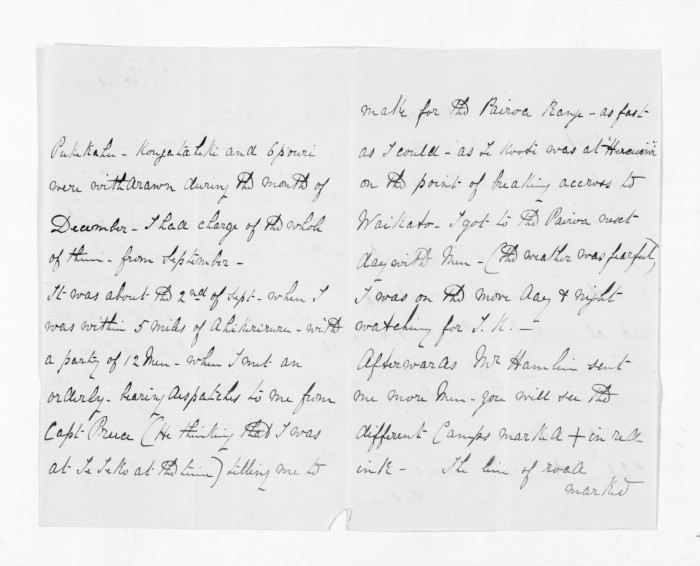 Pukekahu - Kongakatiki and Epouri
were withdrawn during the month of
December - I had charge of the whole
of them - from September -
It was about the 2nd of Sept - when I
was within 5 miles of Ahikereru - with
a party of 12 Men - when I met an
orderly - bearing despatches to me from
Capt Preece (He thinking that I was
at Te Teko at the time) telling me to
make for the Pairoa Range - as fast
as I could - as Te Kooti was at
on the point of breaking accross to
Waikato - I got to the Pairoa next
day with Men - (the weather was fearful)
I was on the move day & night
watching for T.K. -
Afterwards Mr Hamlin sent
me more Men - you will see the
different Camps marked + in red
ink - The line of road
marked